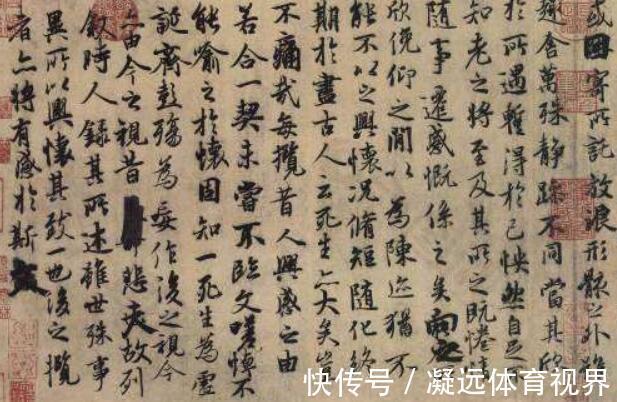 或因寄所託放浪形骸之外雖
趣舍萬殊静躁不同當其欣
於所遇蹔得於己怏然自足
知老之將至及其所之既惓情
隨事遷感慨係之矣向之
欣俛仰之閒以為陳迹猶不
能不以之興懷況脩短隨化終
期於盡古人云死生亦大矣豈
不痛哉每攬昔人興感之由
若合一契未嘗不臨文嗟悼不
能喻之於懷固知一死生為虛
誕齊彭殤為妄作後之視今
亦由今之視昔悲夫故列
叙時人錄其所述雖世殊事
異所以興懷其致一也後之攬
者亦將有感於斯文
快传号 / 凝远体育视界